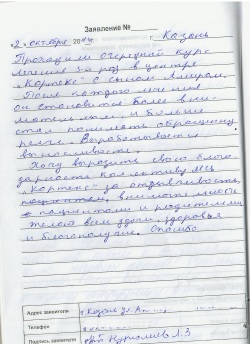 Заявление №
«2» октября 2014 г. г. Казань
Проходили очередной курс
лечения 5й раз в центре
„Кортекс" с сыном
После каждого лечения
он становится более вни-
мательным, и больше
стал понимать обращенную
речь. Вырабатывается
выносливость.
Хочу выразить свою благо-
дарность коллективу МЦ
„Кортекс" за отзывчивость,
внимательность
к пациентам и родителям.
желаю всем удачи, здоровья
и благополучия. Спасибо
Адрес заявителя г. Казань ул.
Телефон
Подпись заявителя